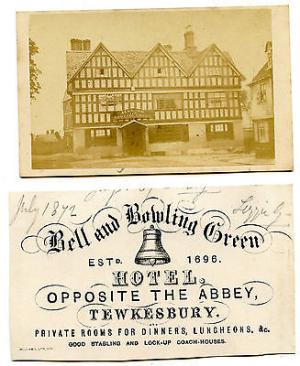 July 1872
Lizzie G.
Bell and Bowling Green
ESTD. 1696.
HOTEL,
OPPOSITE THE ABBEY,
TEWKESBURY.
PRIVATE ROOMS FOR DINNERS, LUNCHEONS, &c.
GOOD STABLING AND LOCK-UP COACH-HOUSES.